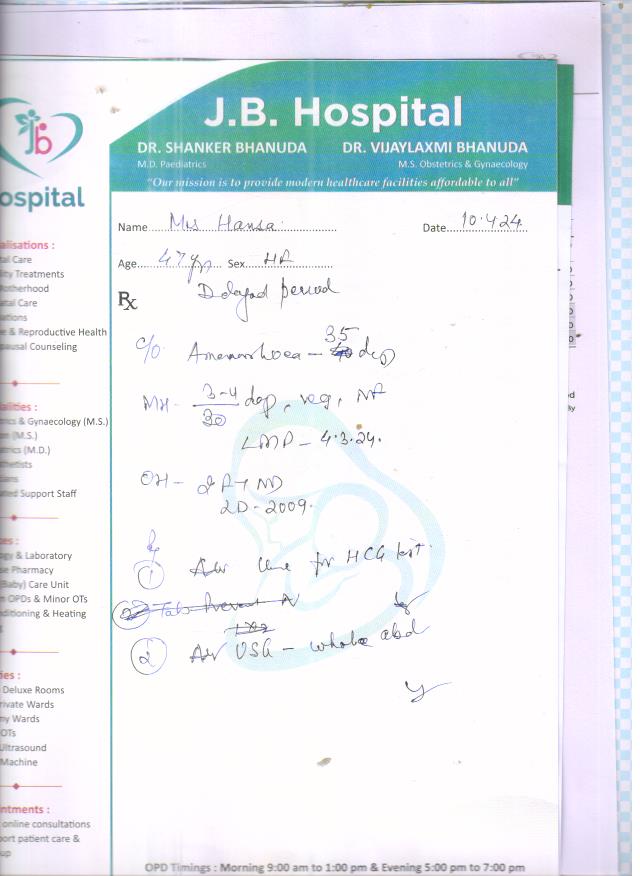 J.B. Hospital
DR. SHANKER BHANUDA DR. VIJAYLAXMI BHANUDA
M.D. Paediatrics M.S. Obstetrics & Gynaecology
"Our mission is to provide modern healthcare facilities affordable to all"
Jb
ospital
Name Mrs Hansa. Date 10.4.24
Age 47 yr Sex
Rx Delayed period
C/o Amenorrhoea - 35 days
MH - 3-4/30 days, reg, NF
LMP - 4.3.24.
OH - 2 FTND
LD - 2009.
1 Adv Urine for HCG test.
2 Adv USG - whole abd
alisations :
tal Care
ity Treatments
otherhood
atal Care
ations
e & Reproductive Health
pausal Counseling
alities :
trics & Gynaecology (M.S.)
n (M.S.)
trics (M.D.)
thetists
ians
ated Support Staff
es :
gy & Laboratory
se Pharmacy
(Baby) Care Unit
n OPDs & Minor OTs
nditioning & Heating
ies :
Deluxe Rooms
rivate Wards
ny Wards
OTs
Ultrasound
Machine
ntments :
online consultations
port patient care &
up
OPD Timings : Morning 9:00 am to 1:00 pm & Evening 5:00 pm to 7:00 pm